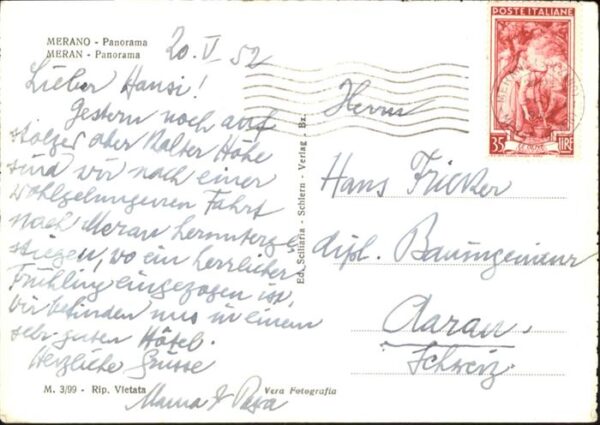 MERANO - Panorama
MERAN - Panorama
20. V 52
Lieber Hansi!
Gestern noch auf
stolzer aber kalter Höhe
sind wir nach einer
wohlgelungenen Fahrt
nach Meran herunterge
stiegen, wo ein herrlicher
Frühling eingezogen ist,
Wir befinden uns in einem
sehr guten Hôtel.
Herzliche Grüsse
Mama & Papa
M. 3/99 - Rip. Vietata
Vera Fotografia
Ed. Sciliaria - Schlern - Verlag - Bz.
POSTE ITALIANE
35 LIRE
Herrn
Hans Fricker
dipl. Bauingenieur
Aarau
Schweiz